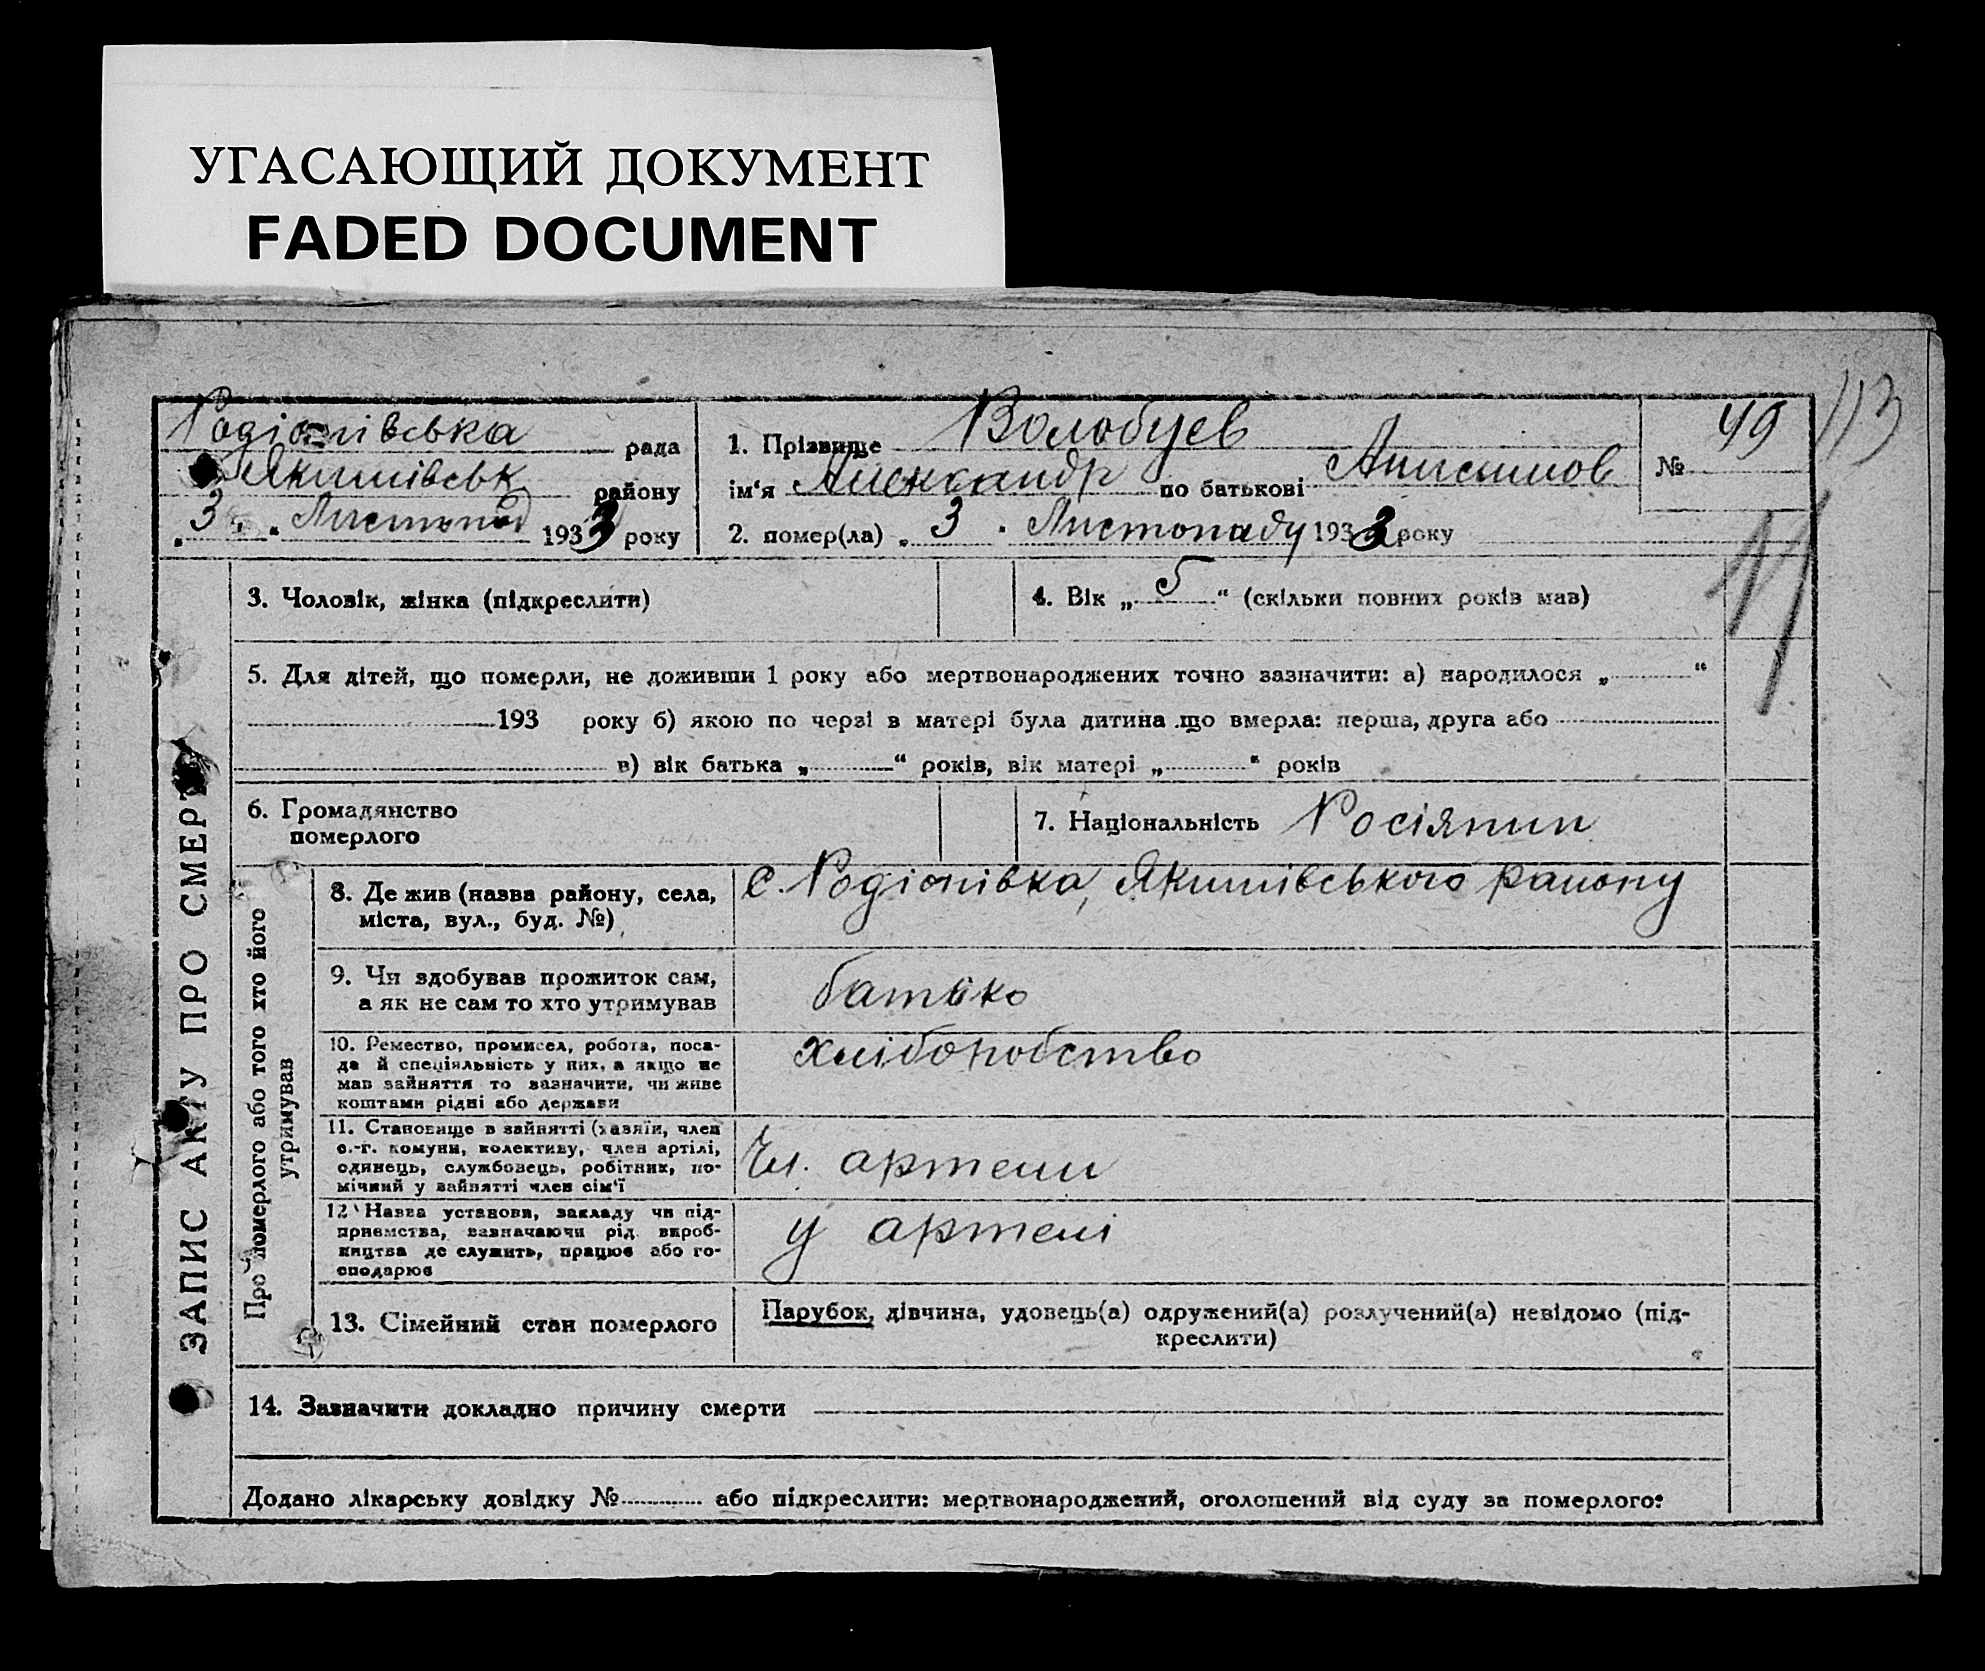 УГАСАЮЩИЙ ДОКУМЕНТ
FADED DOCUMENT
Родіонівська рада
Якимівськ району
„ 3 “ Листопад 1933 року
1. Прізвище Волобуев
ім'я Александр по батькові Анисимов
2. помер(ла) „ 3 “ Листопаду 1933 року
№ 49
113
ЗАПИС АКТУ ПРО СМЕРТЬ
3. Чоловік, жінка (підкреслити)
4. Вік „ 5 “ (скільки повних років мав)
5. Для дітей, що померли, не доживши 1 року або мертвонароджених точно зазначити: а) народилося „ “
193 року б) якою по черзі в матері була дитина що вмерла: перша, друга або
в) вік батька „ “ років, вік матері „ “ років
6. Громадянство
померлого
7. Національність Росіянин
Про померлого або того хто його
утримував
8. Де жив (назва району, села,
міста, вул., буд. №)
с. Родіонівка, Якимівського району
9. Чи здобував прожиток сам,
а як не сам то хто утримував
батько
10. Ремество, промисел, робота, поса-
да й спеціяльність у них, а якщо не
мав зайняття то зазначити, чи живе
коштами рідні або держави
хліборобство
11. Становище в зайнятті (хазяїн, член
с.-г. комуни, колективу, член артілі,
одинець, службовець, робітник, по-
мічний у зайнятті член сім'ї
Чл. артели
12 Назва установи, закладу чи під-
приємства, зазначаючи рід вироб-
ництва де служить, працює або го-
сподарює
у артелі
13. Сімейний стан померлого
Парубок, дівчина, удовець(а) одружений(а) розлучений(а) невідомо (під-
креслити)
14. Зазначити докладно причину смерти
Додано лікарську довідку № або підкреслити: мертвонароджений, оголошений від суду за померлого: